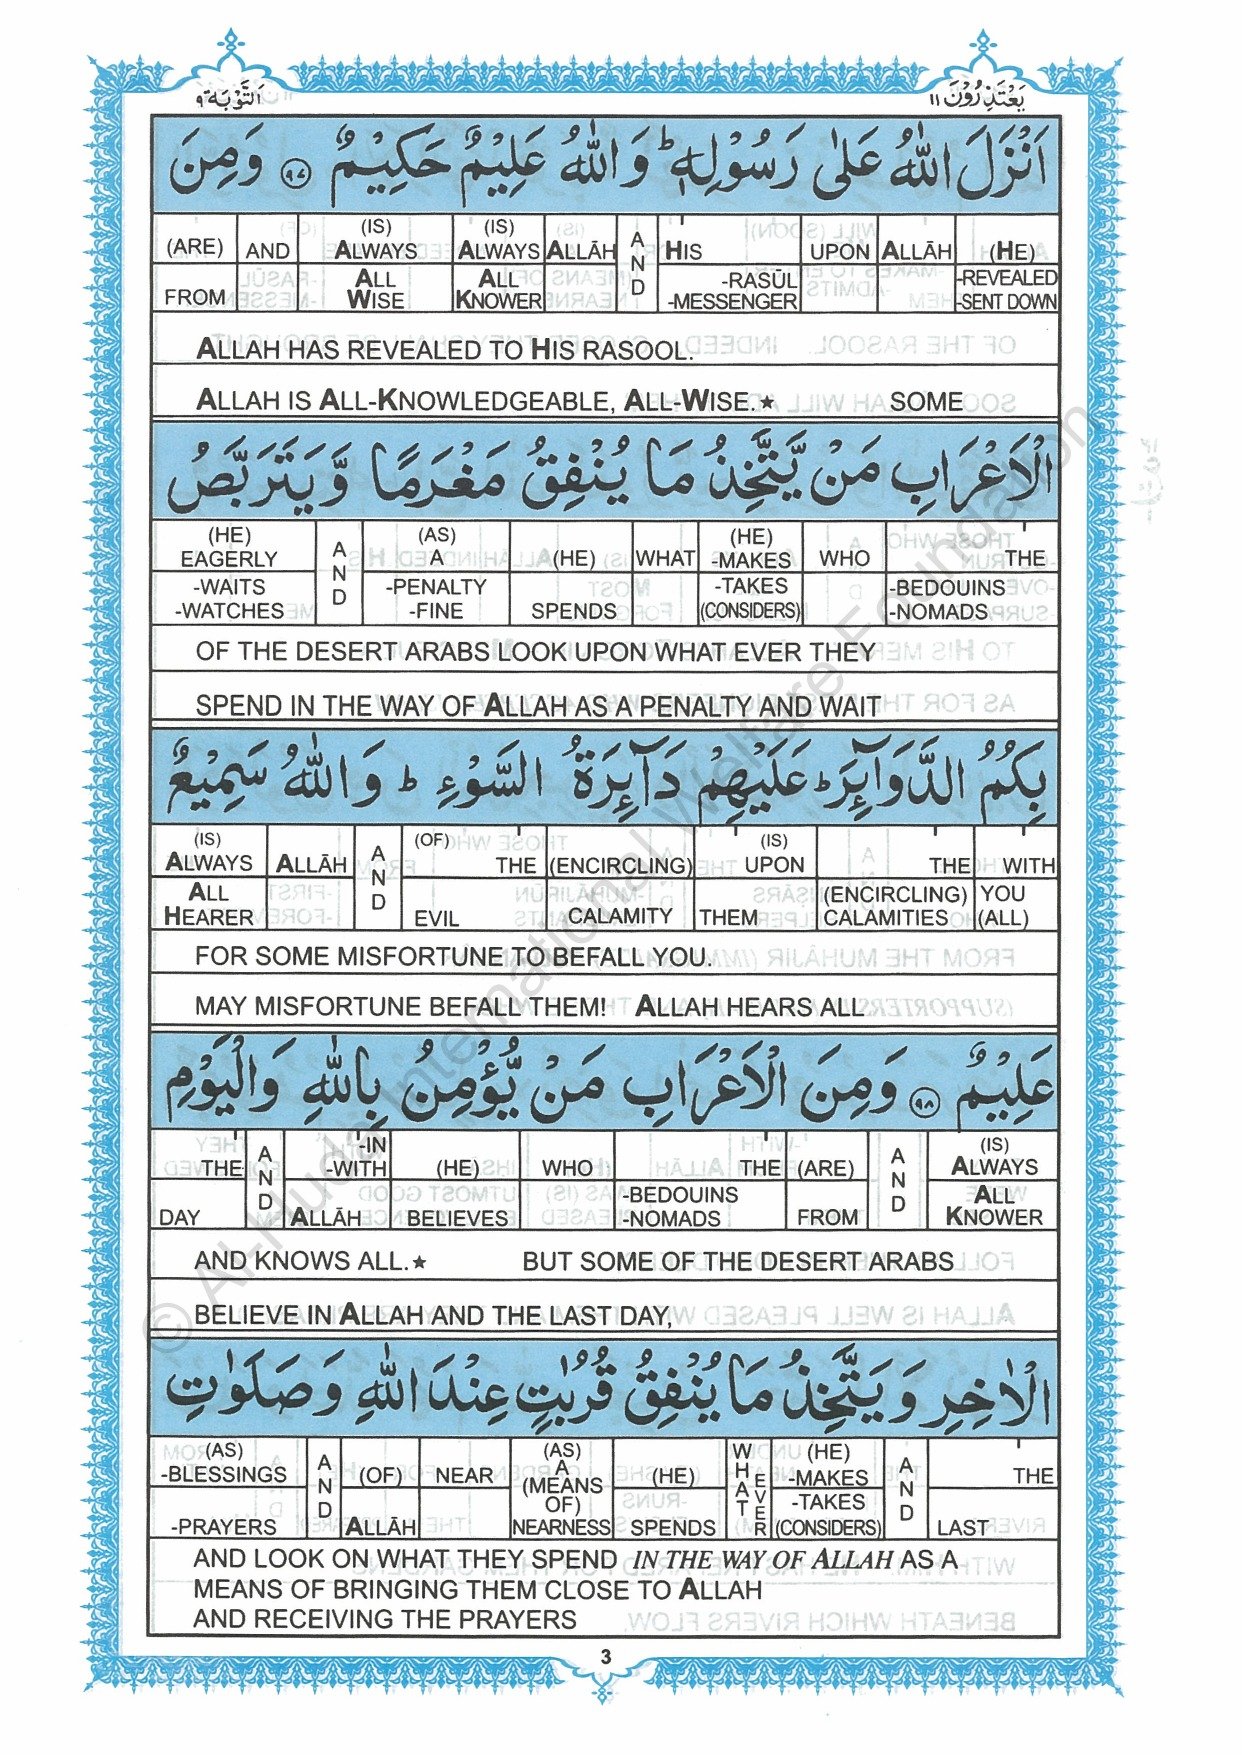 يَعْتَذِرُوْنَ ١١
اَلتَّوْبَة ٩
اَنْزَلَ اللّٰهُ عَلٰى رَسُوْلِهٖ ؕ وَ اللّٰهُ عَلِيْمٌ حَكِيْمٌ ۝٩٧ وَ مِنَ
(ARE) AND (IS) ALWAYS (IS) ALWAYS ALLĀH AND HIS UPON ALLĀH (HE)
FROM ALL WISE ALL KNOWER -RASŪL -MESSENGER -REVEALED -SENT DOWN
ALLAH HAS REVEALED TO HIS RASOOL.
ALLAH IS ALL-KNOWLEDGEABLE, ALL-WISE.★ SOME
الْاَعْرَابِ مَنْ يَّتَّخِذُ مَا يُنْفِقُ مَغْرَمًا وَّ يَتَرَبَّصُ
(HE) EAGERLY AND (AS) A (HE) WHAT (HE) -MAKES WHO THE
-WAITS -WATCHES -PENALTY -FINE SPENDS -TAKES (CONSIDERS) -BEDOUINS -NOMADS
OF THE DESERT ARABS LOOK UPON WHAT EVER THEY
SPEND IN THE WAY OF ALLAH AS A PENALTY AND WAIT
بِكُمُ الدَّوَآئِرَ ؕ عَلَيْهِمْ دَآئِرَةُ السَّوْءِ ؕ وَ اللّٰهُ سَمِيْعٌ
(IS) ALWAYS ALLĀH AND (OF) THE (ENCIRCLING) (IS) UPON THE WITH
ALL HEARER EVIL CALAMITY THEM (ENCIRCLING) CALAMITIES YOU (ALL)
FOR SOME MISFORTUNE TO BEFALL YOU.
MAY MISFORTUNE BEFALL THEM! ALLAH HEARS ALL
عَلِيْمٌ ۝٩٨ وَ مِنَ الْاَعْرَابِ مَنْ يُّؤْمِنُ بِاللّٰهِ وَ الْيَوْمِ
THE AND -IN -WITH (HE) WHO THE (ARE) AND (IS) ALWAYS
DAY ALLĀH BELIEVES -BEDOUINS -NOMADS FROM ALL KNOWER
AND KNOWS ALL.★ BUT SOME OF THE DESERT ARABS
BELIEVE IN ALLAH AND THE LAST DAY,
الْاٰخِرِ وَ يَتَّخِذُ مَا يُنْفِقُ قُرُبٰتٍ عِنْدَ اللّٰهِ وَ صَلَوٰتِ
(AS) -BLESSINGS AND (OF) NEAR (AS) A (MEANS OF) (HE) WHAT EVER (HE) -MAKES AND THE
-PRAYERS ALLĀH NEARNESS SPENDS -TAKES (CONSIDERS) LAST
AND LOOK ON WHAT THEY SPEND IN THE WAY OF ALLAH AS A
MEANS OF BRINGING THEM CLOSE TO ALLAH
AND RECEIVING THE PRAYERS
3
© Al-Huda International Welfare Foundation